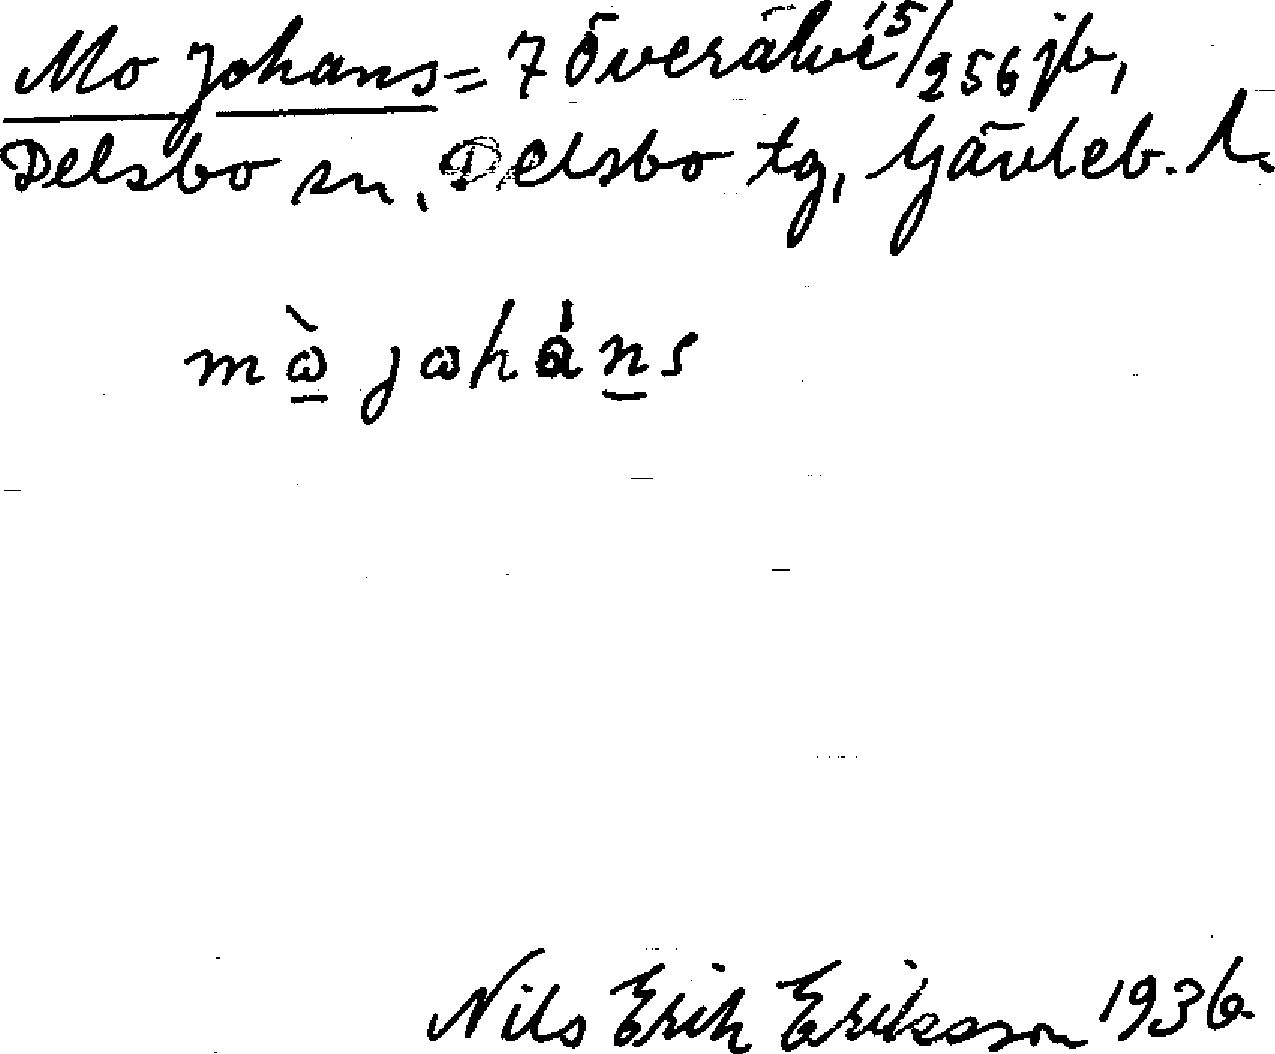 Mo Johans = 7 Överälve 15/256 jb,
Delsbo sn, Delsbo tg, Gävleb. l.
mὼ jωháns
Nils Erik Eriksson 1936